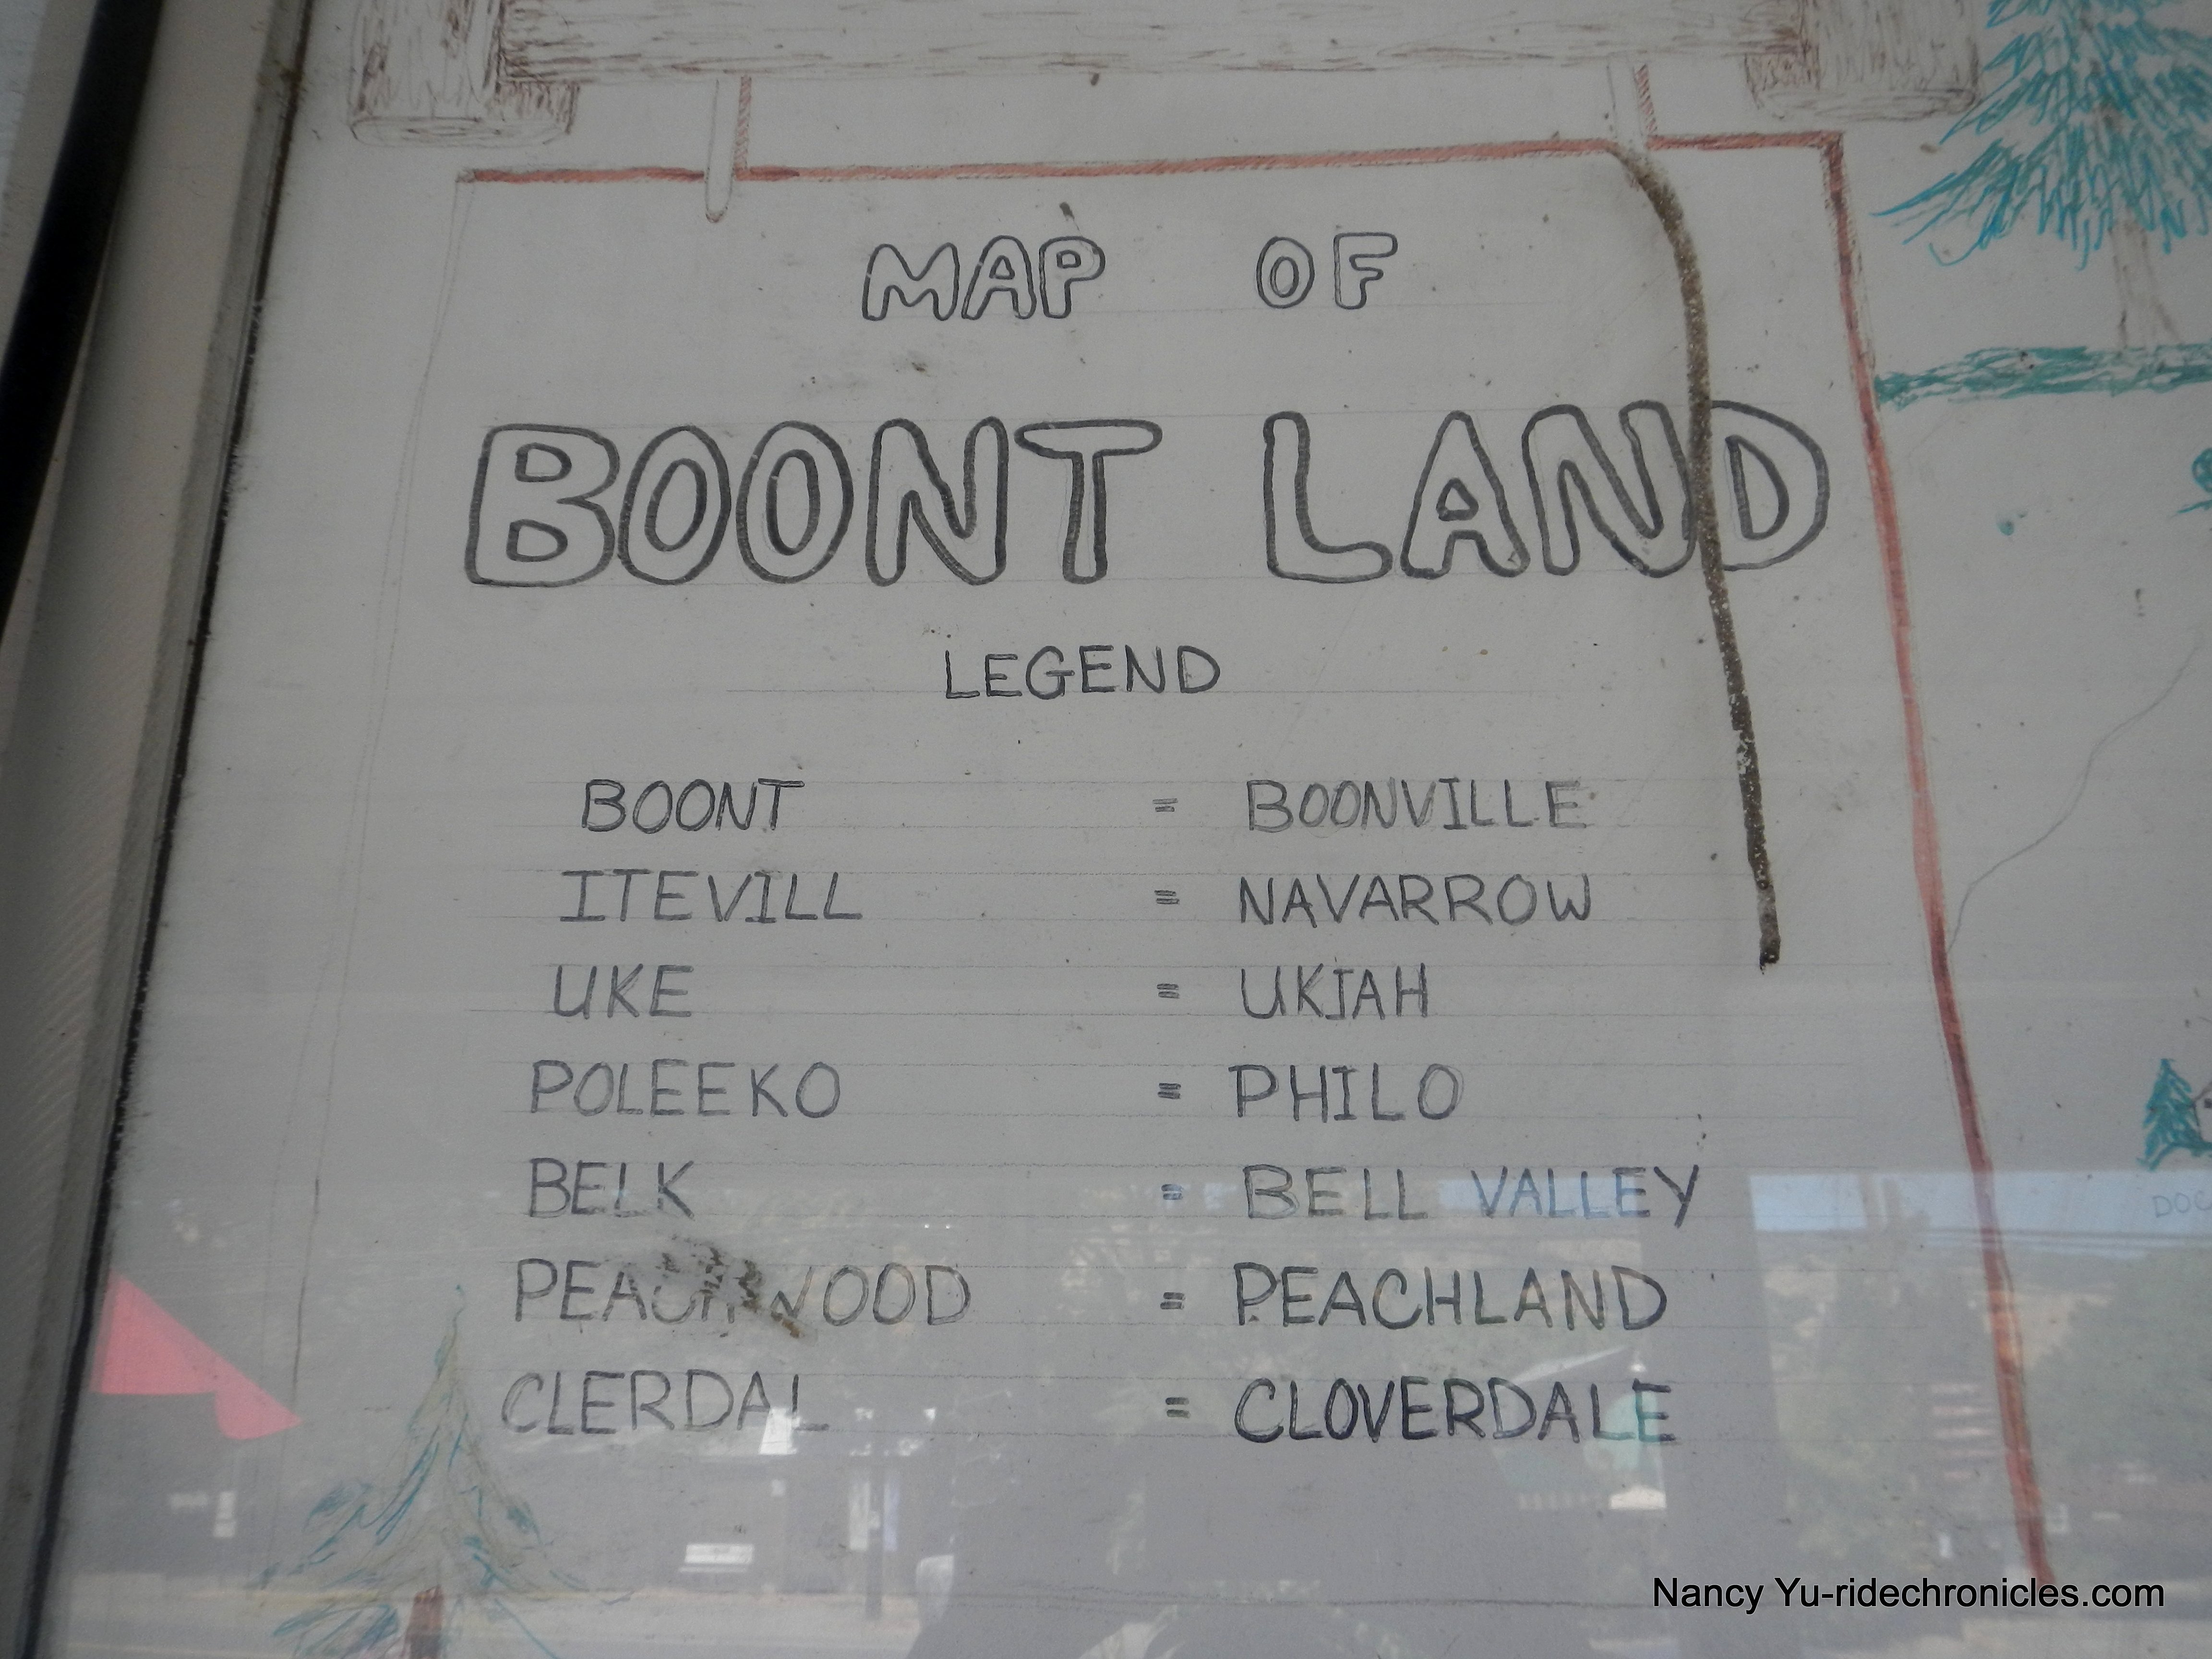 MAP OF
BOONT LAND
LEGEND
BOONT = BOONVILLE
ITEVILL = NAVARROW
UKE = UKIAH
POLEEKO = PHILO
BELK = BELL VALLEY
PEACHWOOD = PEACHLAND
CLERDAL = CLOVERDALE
Nancy Yu-ridechronicles.com